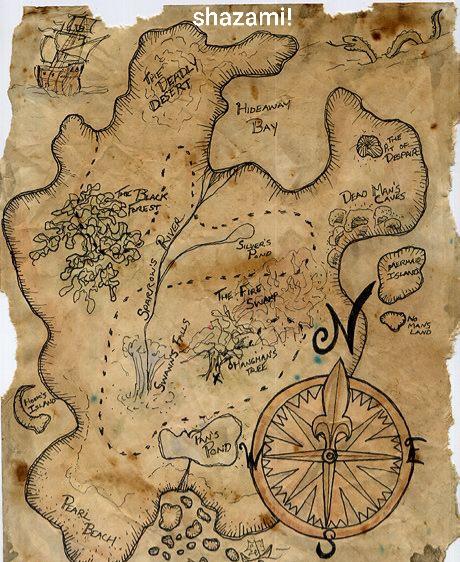 shazami!
THE DEADLY
DESERT
HIDEAWAY
BAY
THE
PIT OF
DESPAIR
THE BLACK
FOREST
DEAD MAN'S
CAVES
SPARROW'S RIVER
SILVER'S
POND
MERMAID
ISLAND
THE FIRE
SWAMP
NO
MAN'S
LAND
N
SWANN'S FALLS
HANGMAN'S
TREE
X
HOOK'S
ISLAND
PAN'S
POND
W
E
S
PEARL
BEACH